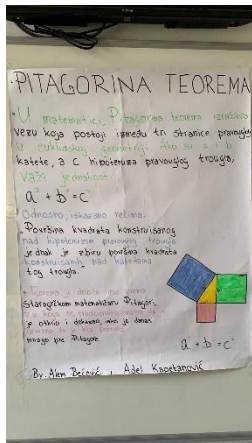 PITAGORINA TEOREMA
• U matematici, Pitagorina teorema izražava
vezu koja postoji između tri stranice pravouglog
U euklidskoj geometriji. Ako su a i b
katete, a c hipotenuza pravouglog trougla,
važi jednakost
a² + b² = c²
Odnosno, iskazano rečima.
Površina kvadrata konstruisanog
nad hipotenuzom pravouglog trougla
jednak je zbiru površina kvadrata
konstruisanih nad katetama
tog trougla.
• Teorema je dobila ime prema
Starogrčkom matematičaru Pitagori,
je otkrio i dokazao, iako je danas
mnogo pre Pitagore.
a² + b² = c²
By: Alen Becović, Adel Knpetanović